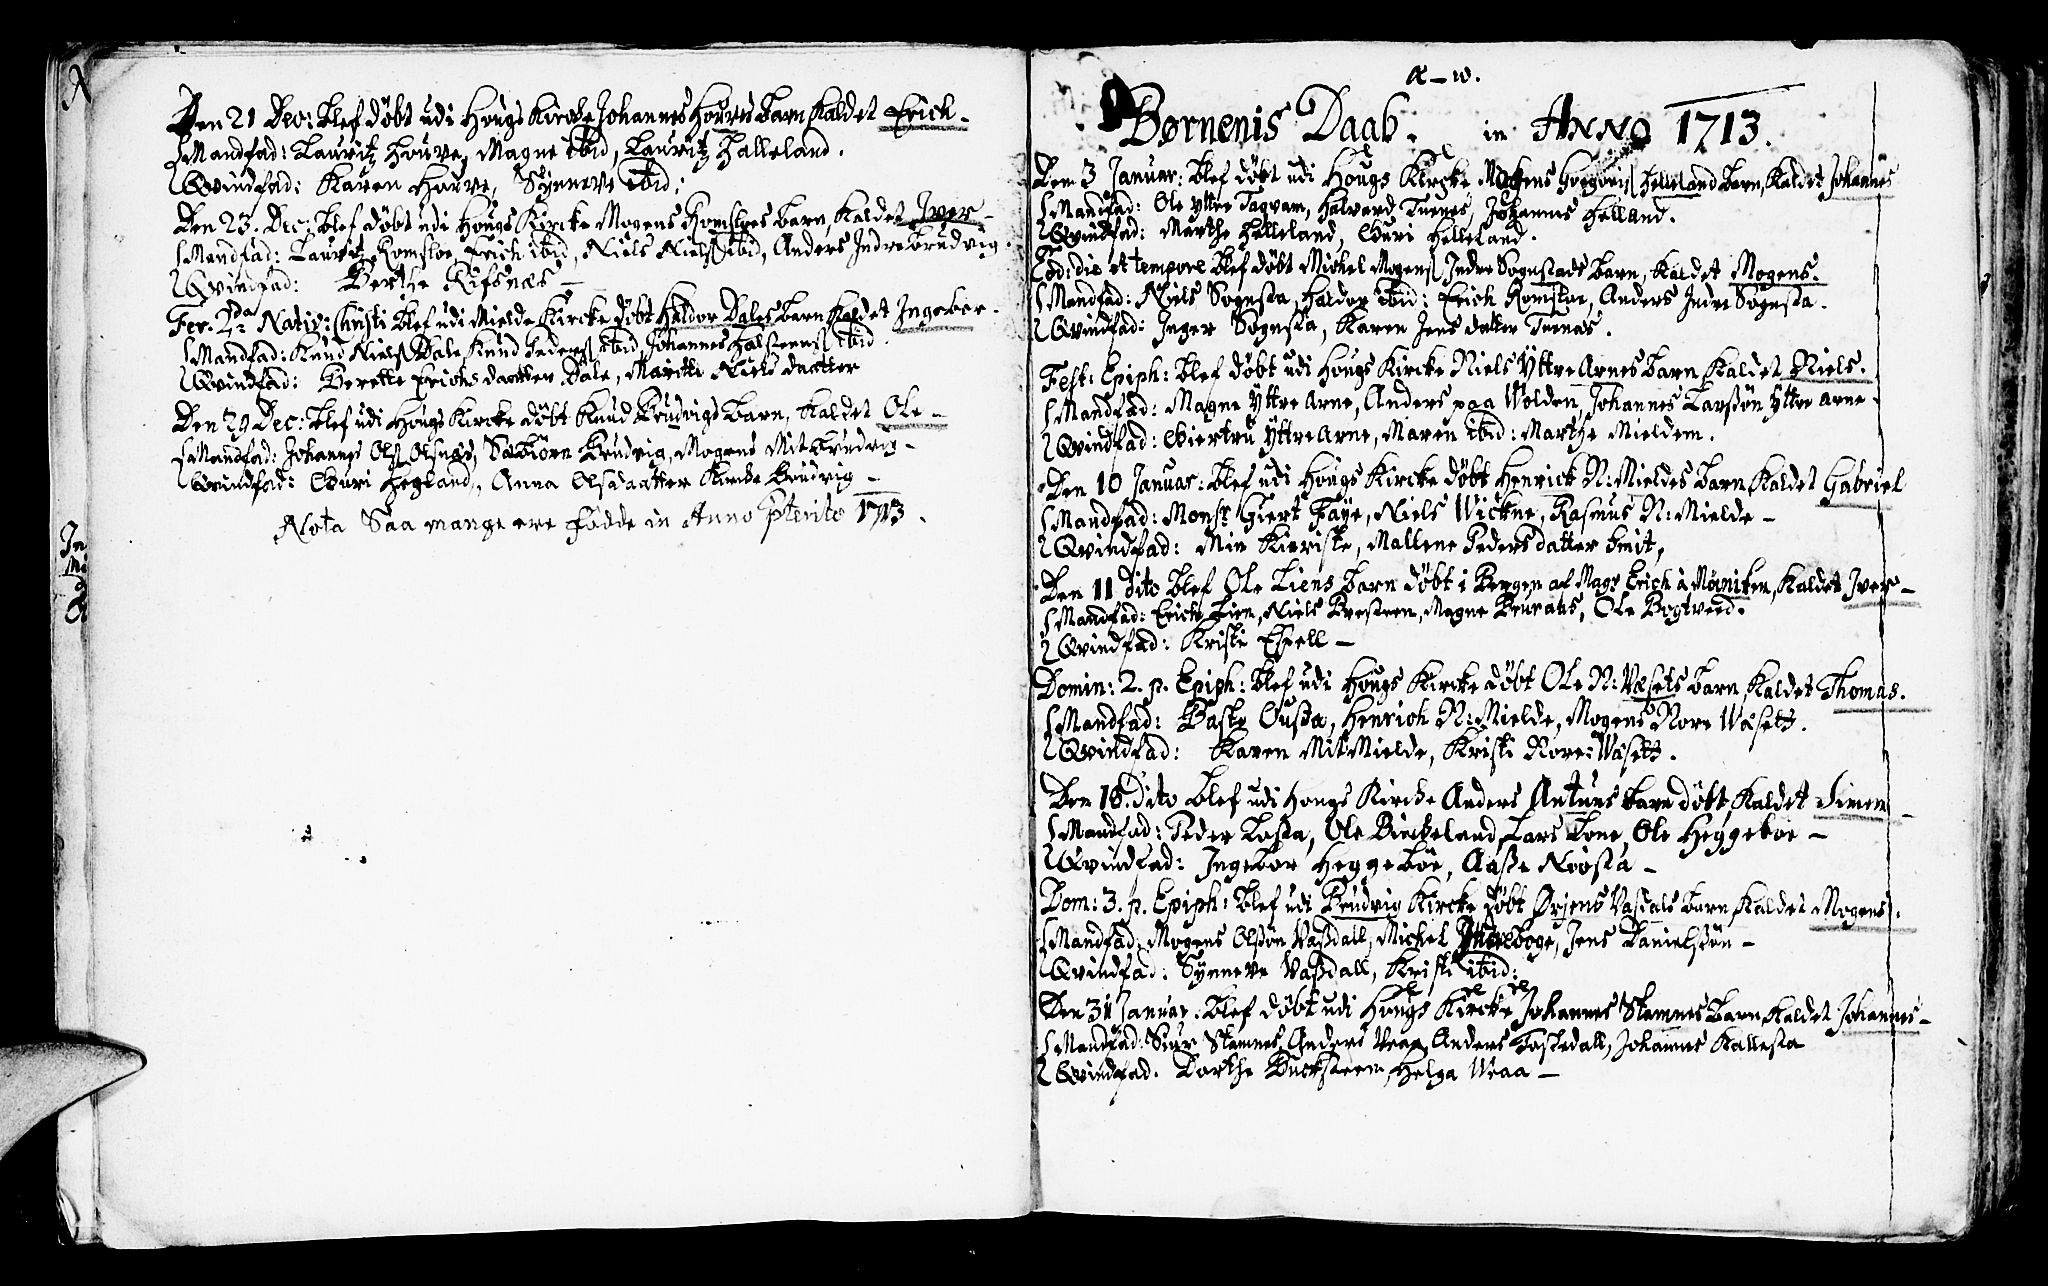 Den 21 Dec: blef döbt udi Hougs Kircke Johannes Horves barn kaldet Erich -
Mandfad: Lauritz Houve, Magne ibid, Lauritz Helleland.
Qvindfad: Karen Horve, Synneve ibid:
Den 23. Dec: blef döbt udi Hougs Kircke Mogens Romsloes barn, kaldet Iver -
Mandfad: Lauritz Romsloe, Erich ibid, Niels Niels ibid, Anders Indrebrudvig.
Qvindfad: Berthe Rifsnæs -
Fer. 2da Nativ: Christi blef udi Mielde Kircke döbt Haldor Dales barn kaldet Ingebor -
Mandfad: Knud Niels Dale Knud Peders ibid, Johannes Halsteens ibid.
Qvindfad: Berette Erichs daatter Dale, Maritte Niels daatter
Den 29 Dec: blef udi Hougs Kircke döbt Knud Brudvigs barn, kaldet Ole -
Mandfad: Johannes Ols Olsnæs, Sæbiörn Brudvig, Mogens Mit Brudvig -
Qvindfad: Guri Hegland, Anna Olsdaatter Kircke Brudvig -
Nota Saa mange ere födde in Anno pterito 1713.
α - ω.
Børnenis Daab. in ANNO 1713.
Den 3 Januar: blef döbt udi Hougs Kircke Mogens Gregoris Helleland barn, kaldet Johannes
Mandfad: Ole ytter Tagvam, Halvard Tuenes, Johannes Helland.
Qvindfad: Marthe Helleland, Guri Helleland.
Eod: die et tempore blef döbt Michel Mogens Indre Sognstads barn, kaldet Mogens.
Mandfad: Niels Sognsta, Haldor ibid: Erich Romsloe, Anders Indre Sognsta.
Qvindfad: Inger Sognsta, Karen Jens datter Tuenas.
Fest: Epiph: blef döbt udi Hougs Kircke Niels Yttre Arnes barn kaldet Niels.
Mandfad: Magne Yttre Arne, Anders paa Wolden, Johannes Larssön Yttre Arne.
Qvindfad: Giertru Yttre Arne, Maren ibid: Marthe Mieldem.
Den 10 Januar: blef udi Hougs Kircke döbt Henrick N: Mieldes barn kaldet Gabriel
Mandfad: Monsr Giert Faye, Niels Wickne, Rasmus N: Mielde -
Qvindfad: Min Kieriste, Mallene Peders datter Smit,
Den 11 dito blef Ole Liens barn döbt i Bergen af Mags Erich à Møniken, kaldet Iver -
Mandfad: Erich Lien, Niels Bresteen, Magne Beuratis, Ole Bogtveed.
Qvindfad: Kristi Espell -
Domin: 2. p. Epiph: blef udi Hougs Kircke döbt Ole N: Væsets barn kaldet Thomas.
Mandfad: Baste Gussa, Henrich N: Mielde, Mogens Nore Wasett.
Qvindfad: Karen Mit Mielde, Kristi Nore: Wasett.
Den 18. dito blef udi Hougs Kircke Anders Antuns barn döbt kaldet Simen -
Mandfad: Peder Lossa, Ole Birckeland, Lars Lone, Ole Heggeboe -
Qvindfad: Ingebor Heggeböe, Aase Nøosta -
Dom: 3. p. Epiph: blef udi Brudvig Kircke döbt Ørjens Vasdals barn kaldet Mogens.
Mandfad: Mogens Olsön Vassdall, Michel boge, Jens Danielssön -
Qvindfad: Synneve Vassdall, Kristi ibid:
Den 31 Januar. blef döbt udi Hougs Kircke Johannes Stamnes barn, kaldet Johannes -
Mandfad: Siur Stamnes, Anders Veaa, Anders Fostedall, Johannes Kallesta
Qvindfad. Dorthe Bucksteen, Helga Weaa -